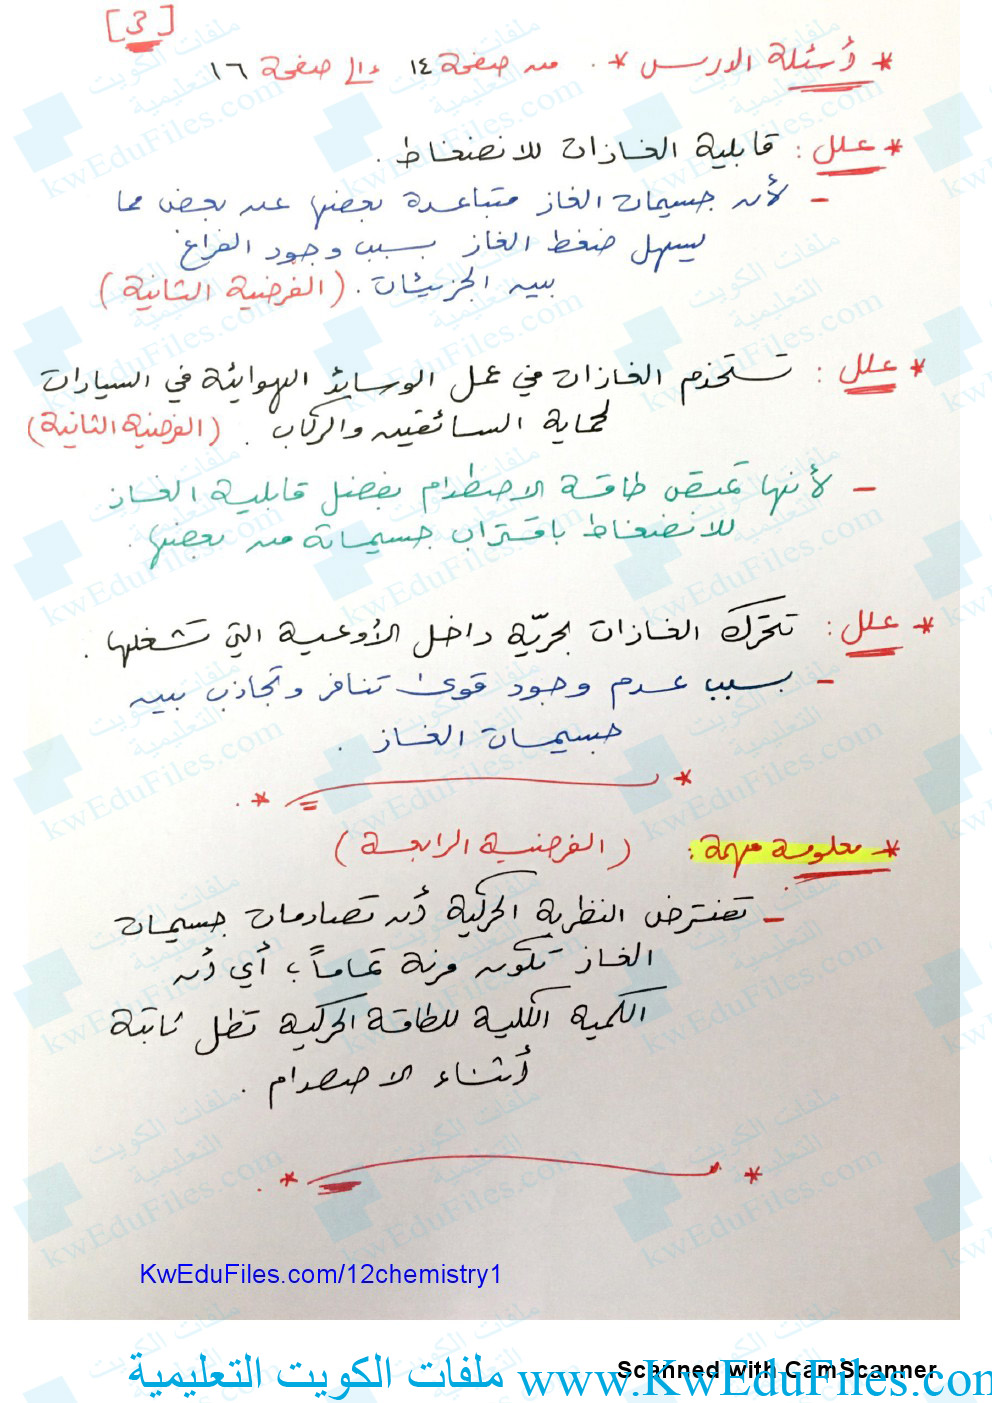 [3]
* أسئلة الدرس * . من صفحة ١٤ إلى صفحة ١٦
* علل : قابلية الغازات للانضغاط .
- لأن جسيمات الغاز متباعدة بعضها عن بعض مما
يسهل ضغط الغاز بسبب وجود الفراغ
بين الجزيئات . (الفرضية الثانية)
* علل : تستخدم الغازات في عمل الوسائد الهوائية في السيارات
لحماية السائقين والركاب . (الفرضية الثانية)
- لأنها تمتص طاقة الاصطدام بفضل قابلية الغاز
للانضغاط باقتراب جسيماته من بعضها .
* علل : تتحرك الغازات بحريّة داخل الأوعية التي تشغلها .
- بسبب عدم وجود قوى تنافر وتجاذب بين
جسيمات الغاز .
* معلومة مهمة : (الفرضية الرابعة)
- تفترض النظرية الحركية أن تصادمات جسيمات
الغاز تكون مرنة تماماً ، أي أن
الكمية الكلية للطاقة الحركية تظل ثابتة
أثناء الاصطدام .
KwEduFiles.com/12chemistry1
Scanned with CamScanner
www.KwEduFiles.com ملفات الكويت التعليمية